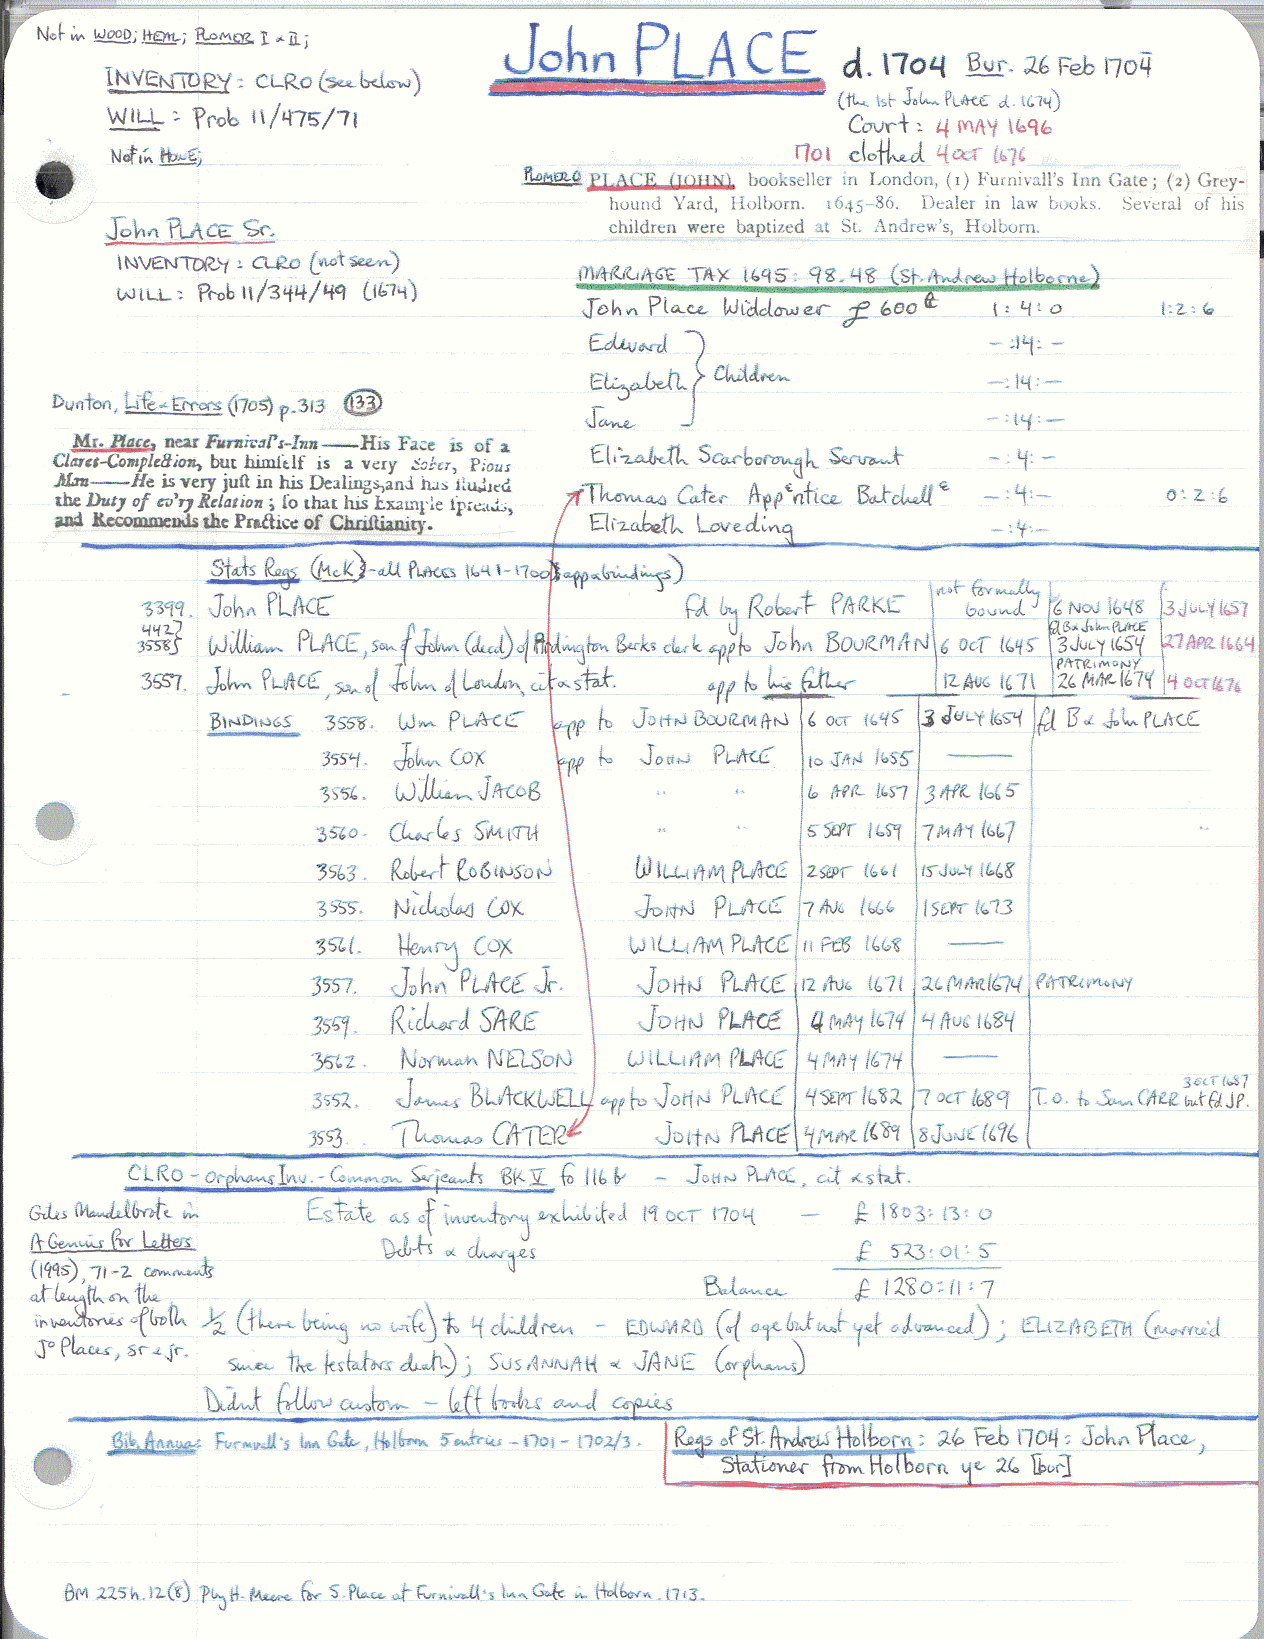 Not in WOOD; HEAL; PLOMER I & II;
John PLACE d. 1704 Bur. 26 Feb 1704
INVENTORY: CLRO (see below)
(the 1st John PLACE d. 1674)
WILL: Prob 11/475/71
Court: 4 MAY 1696
Not in HOWE;
1701 clothed 4 OCT 1676
PLOMER O PLACE (JOHN), bookseller in London, (1) Furnivall's Inn Gate; (2) Grey-
hound Yard, Holborn. 1645–86. Dealer in law books. Several of his
children were baptized at St. Andrew's, Holborn.
John PLACE Sr.
INVENTORY: CLRO (not seen)
WILL: Prob 11/344/49 (1674)
MARRIAGE TAX 1695: 98.48 (St. Andrew Holborne)
John Place Widdower £ 600 1:4:0 1:2:6
Edward –:14:–
Elizabeth } Children –:14:–
Jane –:14:–
Elizabeth Scarborough Servant –:4:–
Thomas Cater Appentice Batchell –:4:– 0:2:6
Elizabeth Loveding –:4:–
Dunton, Life & Errors (1705) p.313 (133)
Mr. Place, near Furnival's-Inn——His Face is of a
Claret-Complection, but himſelf is a very Sober, Pious
Man——He is very juſt in his Dealings, and has ſtudied
the Duty of ev'ry Relation; ſo that his Example ſpreads,
and Recommends the Practice of Chriſtianity.
Stats Regs (McK - all PLACES 1641-1700 & app & bindings)
3399. John PLACE fd by Robert PARKE not formally bound 6 NOV 1648 3 JULY 1657
4427 3558} William PLACE, son of John (decd) of Berks clerk app to John BOURMAN 6 OCT 1645 fd B & John PLACE 3 JULY 1654 27 APR 1664
3557. John PLACE, son of John of London, cit & stat. app to his father 12 AUG 1671 PATRIMONY 26 MAR 1674 4 OCT 1676
BINDINGS 3558. Wm PLACE app to JOHN BOURMAN 6 OCT 1645 3 JULY 1654 fd B & John PLACE
3554. John COX app to JOHN PLACE 10 JAN 1655 ——
3556. William JACOB " " 6 APR 1657 3 APR 1665
3560. Charles SMITH " " 5 SEPT 1659 7 MAY 1667 "
3563. Robert ROBINSON WILLIAM PLACE 2 SEPT 1661 15 JULY 1668
3555. Nicholas COX JOHN PLACE 7 AUG 1666 1 SEPT 1673
3561. Henry COX WILLIAM PLACE 11 FEB 1668 ——
3557. John PLACE Jr. JOHN PLACE 12 AUG 1671 26 MAR 1674 PATRIMONY
3559. Richard SARE JOHN PLACE 4 MAY 1674 4 AUG 1684
3562. Norman NELSON WILLIAM PLACE 4 MAY 1674 ——
3552. James BLACKWELL app to JOHN PLACE 4 SEPT 1682 7 OCT 1689 T.O. to Sam CARR 3 OCT 1687 but fd J.P.
3553. Thomas CATER JOHN PLACE 4 MAR 1689 8 JUNE 1696
CLRO - Orphans Inv. - Common Serjeants BK V fo 116 b – JOHN PLACE, cit & stat.
Estate as of inventory exhibited 19 OCT 1704 – £ 1803:13:0
Debts & charges £ 523:01:5
Balance £ 1280:11:7
Giles Mandelbrote in
A Genius for Letters
(1995), 71-2 comments
at length on the
inventories of both
Jo Places, sr & jr.
1/2 (there being no wife) to 4 children – EDWARD (of age but not yet advanced); ELIZABETH (married
since the testators death); SUSANNAH & JANE (orphans)
Didnt follow custom – left books and copies
Bib. Annua: Furnivall's Inn Gate, Holborn 5 entries - 1701 - 1702/3.
Regs of St. Andrew Holborn: 26 Feb 1704: John Place,
Stationer from Holborn ye 26 [bur]
BM 225 h.12(8) P by H. Meere for S. Place at Furnivall's Inn Gate in Holborn. 1713.